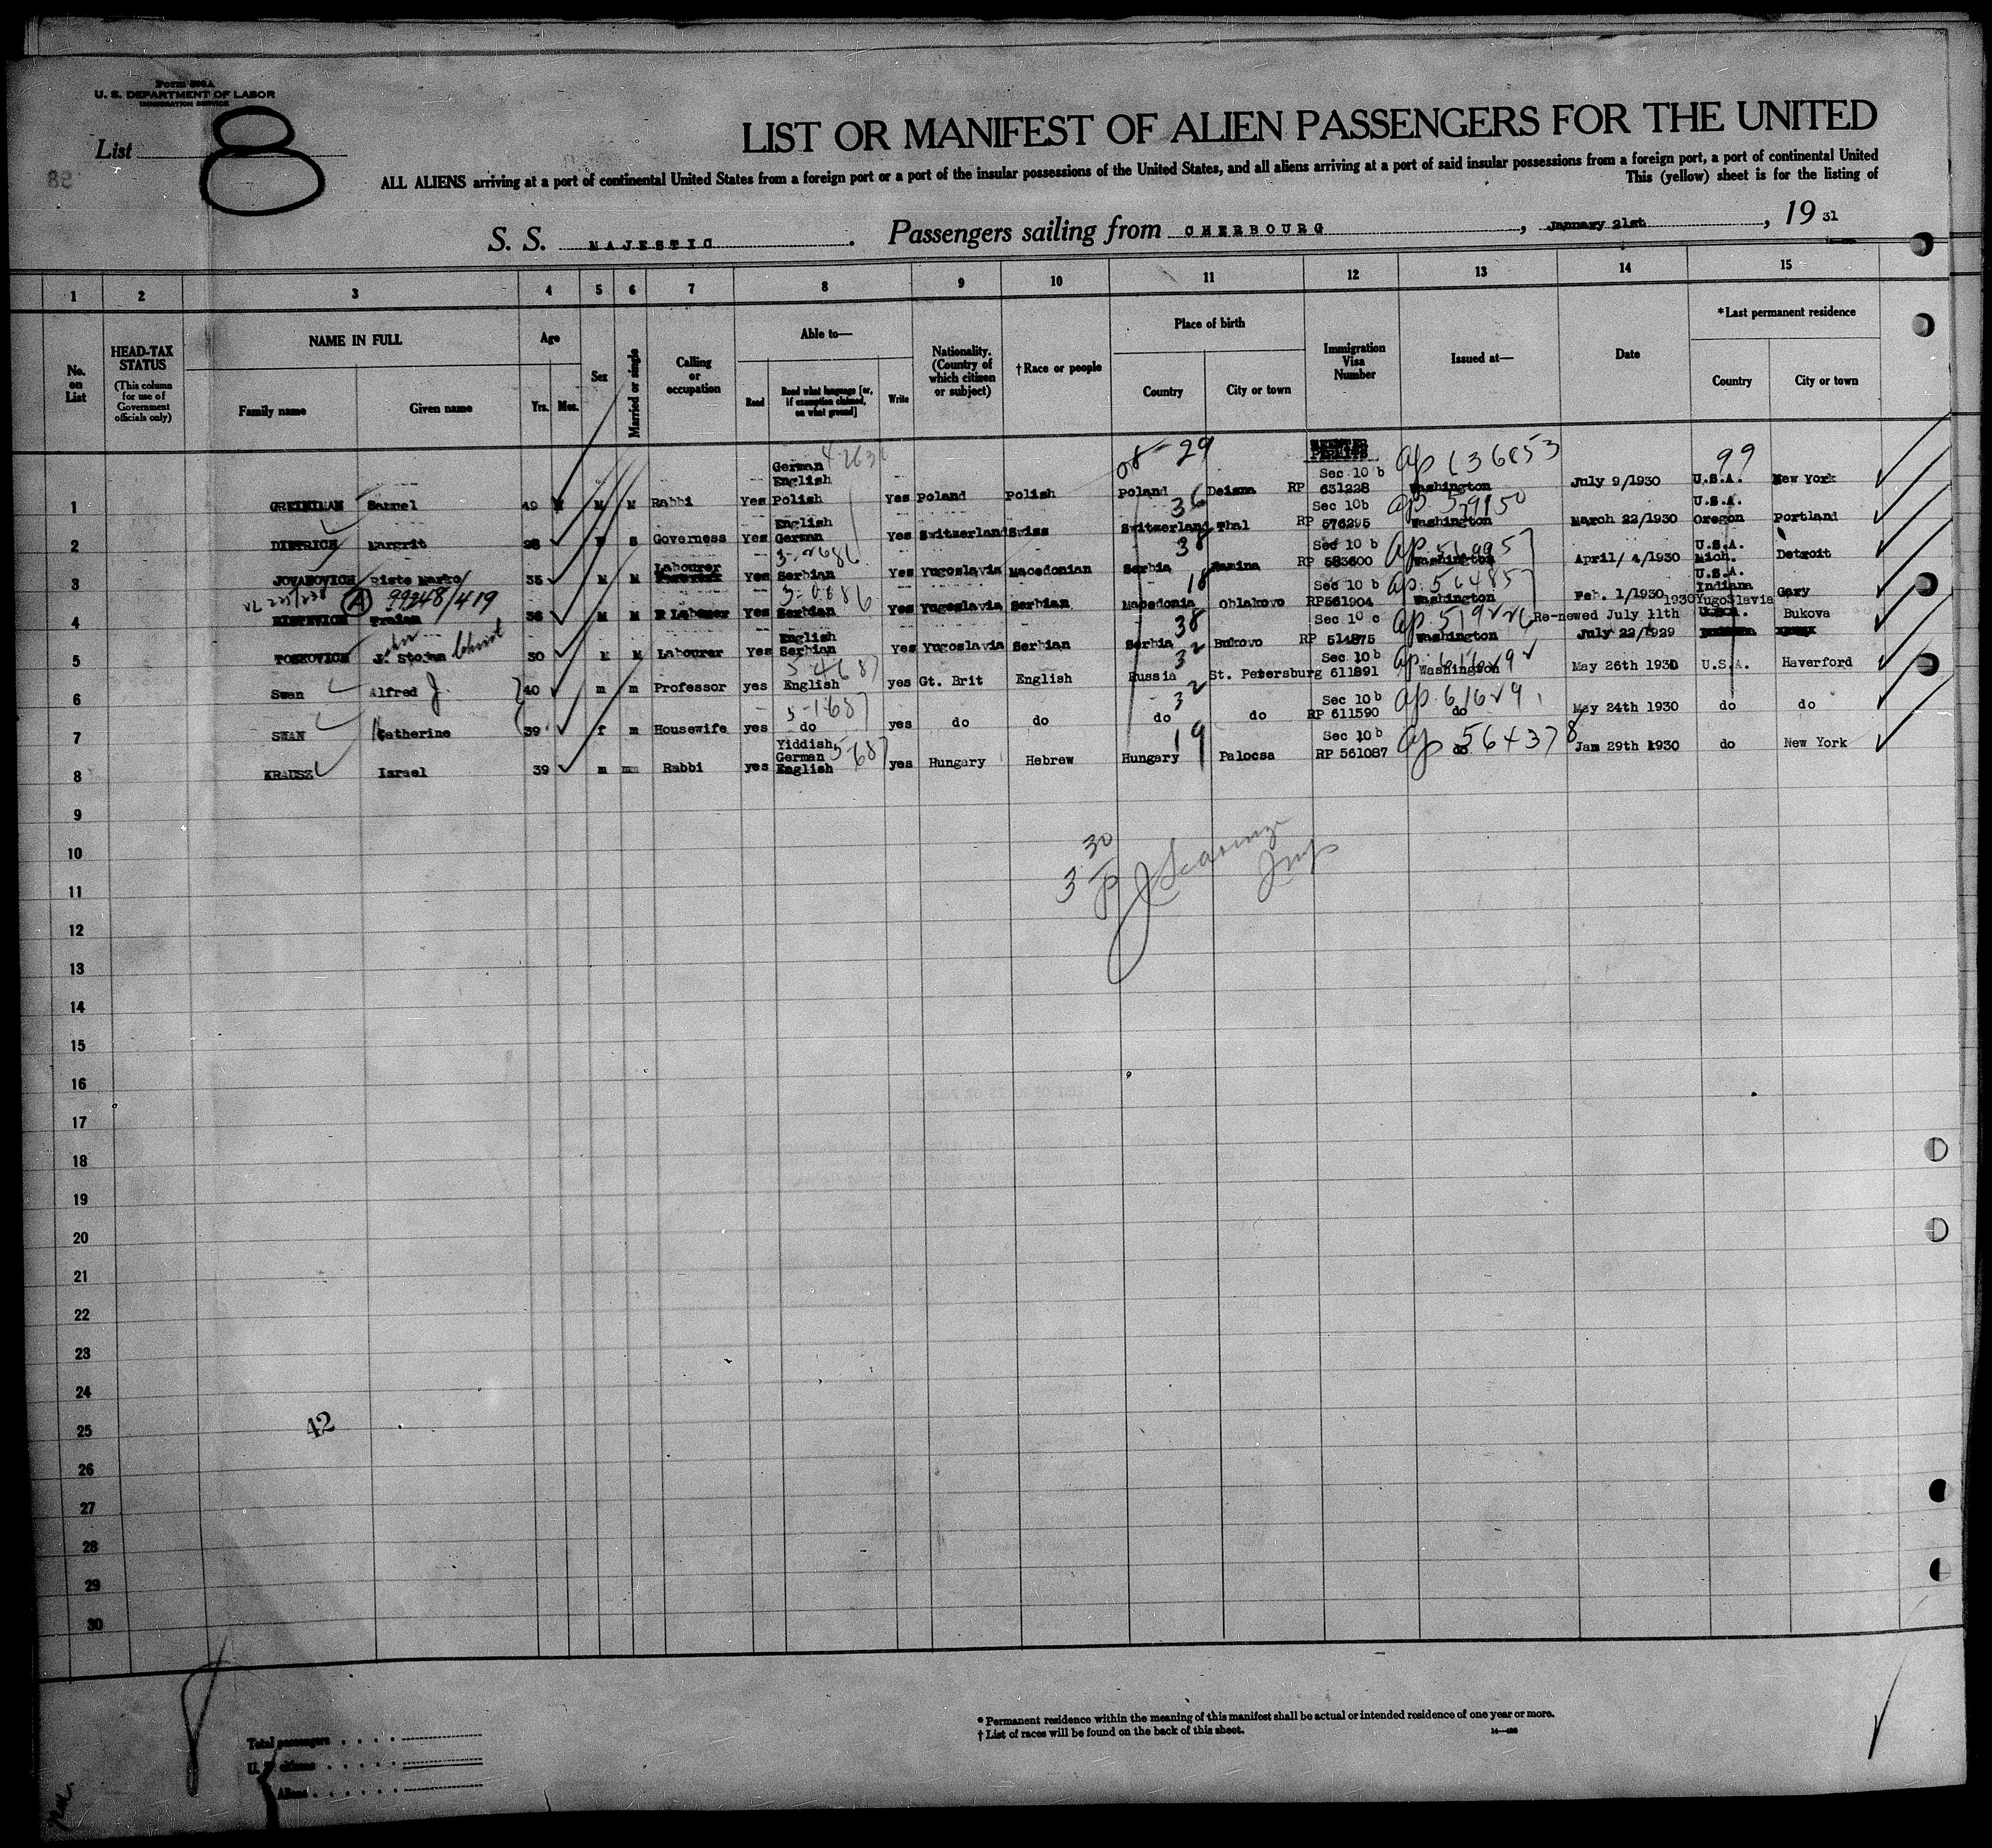 Form 500A
U. S. DEPARTMENT OF LABOR
IMMIGRATION SERVICE
List 8
LIST OR MANIFEST OF ALIEN PASSENGERS FOR THE UNITED
ALL ALIENS arriving at a port of continental United States from a foreign port or a port of the insular possessions of the United States, and all aliens arriving at a port of said insular possessions from a foreign port, a port of continental United
This (yellow) sheet is for the listing of
S. S. MAJESTIC. Passengers sailing from CHERBOURG, January 21st, 19 31
1 2 3 4 5 6 7 8 9 10 11 12 13 14 15
No. on List
HEAD-TAX STATUS
(This column for use of Government officials only)
NAME IN FULL
Family name Given name
Age
Yrs. Mos.
Sex
Married or single
Calling or occupation
Able to—
Read Read what language [or, if exemption claimed, on what ground] Write
Nationality. (Country of which citizen or subject)
†Race or people
Place of birth
Country City or town
Immigration Visa Number
Issued at—
Date
*Last permanent residence
Country City or town
08-29 99
1 Samuel 49 M M Rabbi Yes German English Polish Yes Poland Polish Poland Deisna Sec 10 b RP 631228 Washington July 9/1930 U.S.A. New York
2 DIETRICH Margrit S Governess Yes English German Yes Switzerland Swiss Switzerland Thal Sec 10b RP 576295 Washington March 22/1930 U.S.A. Oregon Portland
3 JOVANOVICH Riste Marko 35 M M Labourer Yes Serbian Yes Yugoslavia Macedonian Serbia Sec 10 b RP 583600 Washington April/ 4/1930 U.S.A. Mich. Detroit
A 99248/419
4 RISTEVICH Traian 36 M M R Labourer Yes Serbian Yes Yugoslavia Serbian Macedonia Oblakovo Sec 10 b RP561904 Washington Feb. 1/1930 U.S.A. Indiana Gary
5 TOSKOVICH J. Stojan 30 M M Labourer Yes English Serbian Yes Yugoslavia Serbian Serbia Bukovo Sec 10 c RP 514875 Washington Re-newed July 11th 1930 July 22/1929 YugoSlavia Bukova
6 Swan Alfred J. 40 m m Professor yes English yes Gt. Brit English Russia St. Petersburg Sec 10b 611891 Washington May 26th 1930 U.S.A. Haverford
7 SWAN Katherine 39 f m Housewife yes do yes do do do do Sec 10b RP 611590 do May 24th 1930 do do
8 KRAUSZ Israel 39 m m Rabbi yes Yiddish German English yes Hungary Hebrew Hungary Palocsa Sec 10b RP 561087 do Jan 29th 1930 do New York
9
10
11
12
13
14
15
16
17
18
19
20
21
22
23
24
25
26
27
28
29
30
42
Total passengers
U. S. citizens
Aliens
* Permanent residence within the meaning of this manifest shall be actual or intended residence of one year or more.
† List of races will be found on the back of this sheet.